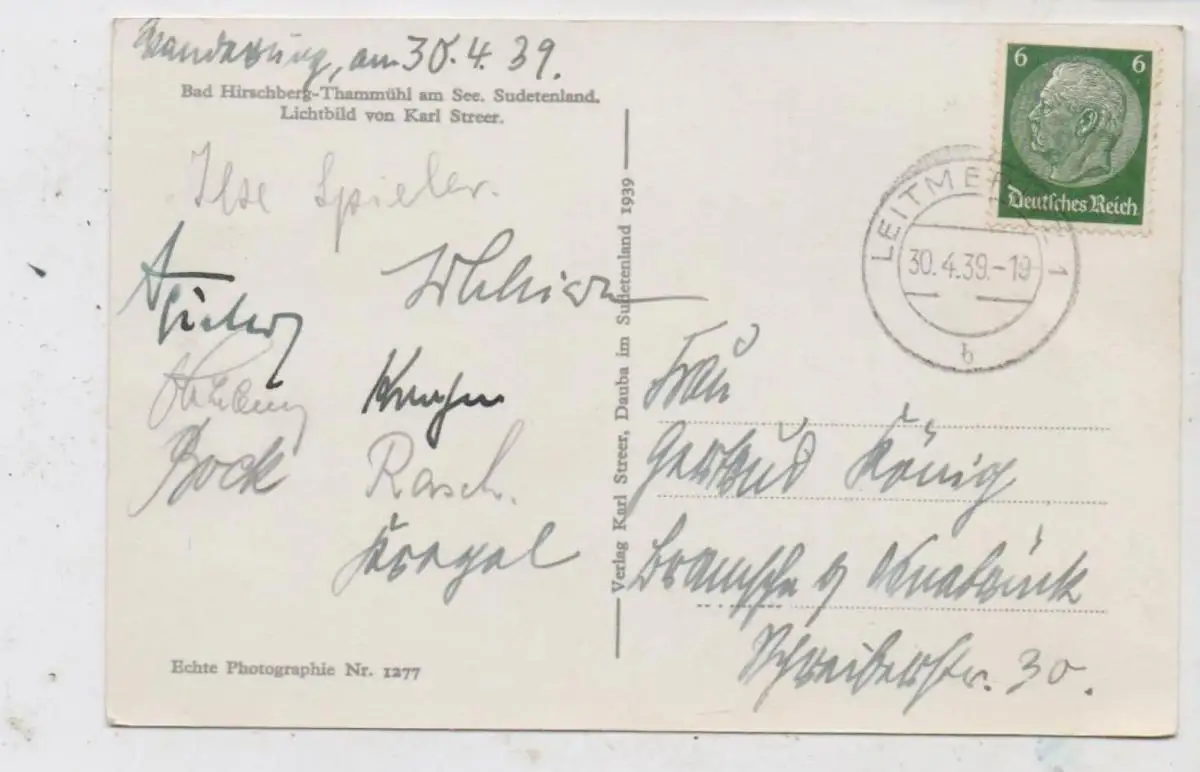 Wanderung, am 30.4.39.
Bad Hirschberg-Thammühl am See. Sudetenland.
Lichtbild von Karl Streer.
Ilse Spieler.
Bock
Rasch.
Kregel
Echte Photographie Nr. 1277
Verlag Karl Streer, Dauba im Sudetenland 1939
6 6
Deutsches Reich
LEITMER 1
30.4.39.-19
b
Frau
Gertrud König
Bramsche b/ Osnabrück
Schreiberstr. 30.